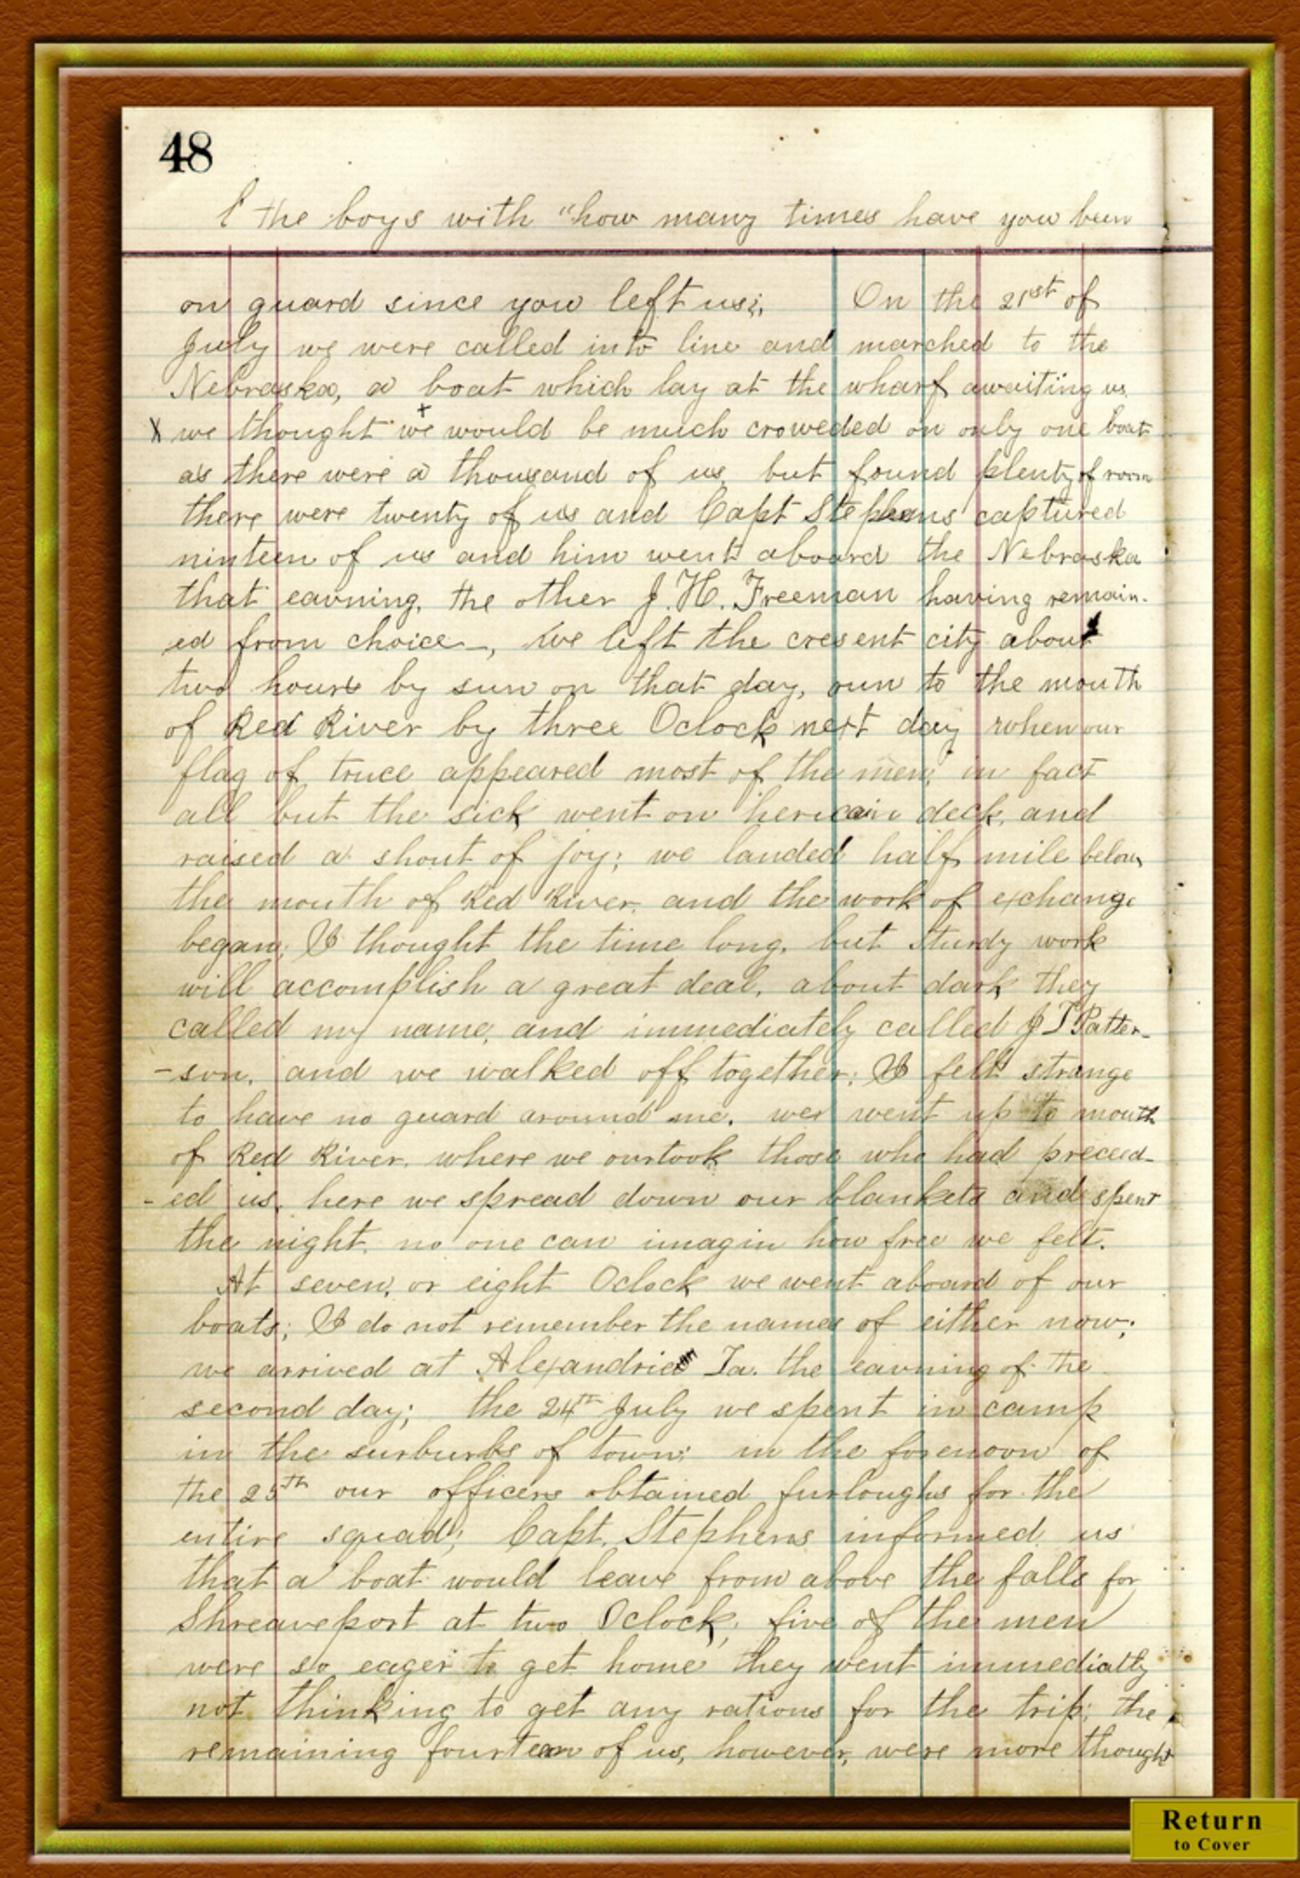 48
& the boys with "how many times have you been
on guard since you left us;, On the 21st of
July we were called into line and marched to the
Nebraska, a boat which lay at the wharf awaiting us.
X we thought we would be much croweded on only one boat
as there were a thousand of us, but found plenty of room
there were twenty of us and Capt Stephens captured
ninteen of us and him went aboard the Nebraska
that eavning, the other J. H. Freeman having remain-
ed from choice, we left the cresent city about
two hours by sun on that day, run to the mouth
of Red River by three Oclock next day when our
flag of truce appeared most of the men; in fact
all but the sick went on hericain deck, and
raised a shout of joy; we landed half mile below
the mouth of Red River, and the work of exchange
began; I thought the time long, but sturdy work
will accomplish a great deal, about dark they
called my name, and immediately called J T Patter-
-son, and we walked off together; I felt strange
to have no guard around me, we went up to mouth
of Red River, where we ourtook those who had preceed-
-ed us, here we spread down our blankets and spent
the night, no one can imagin how free we felt.
At seven, or eight Oclock we went aboard of our
boats; I do not remember the names of either now;
we arrived at Alexandria La. the eavning of the
second day; the 24th July we spent in camp
in the surburbs of town; in the forenoon of
the 25th our officers obtained furloughs for the
entire squad; Capt. Stephens informed us
that a boat would leave from above the falls for
Shreaveport at two Oclock; five of the men
were so eager to get home they went immediatly
not thinking to get any rations for the trip; the
remaining fourteen of us, however, were more though
Return
to Cover